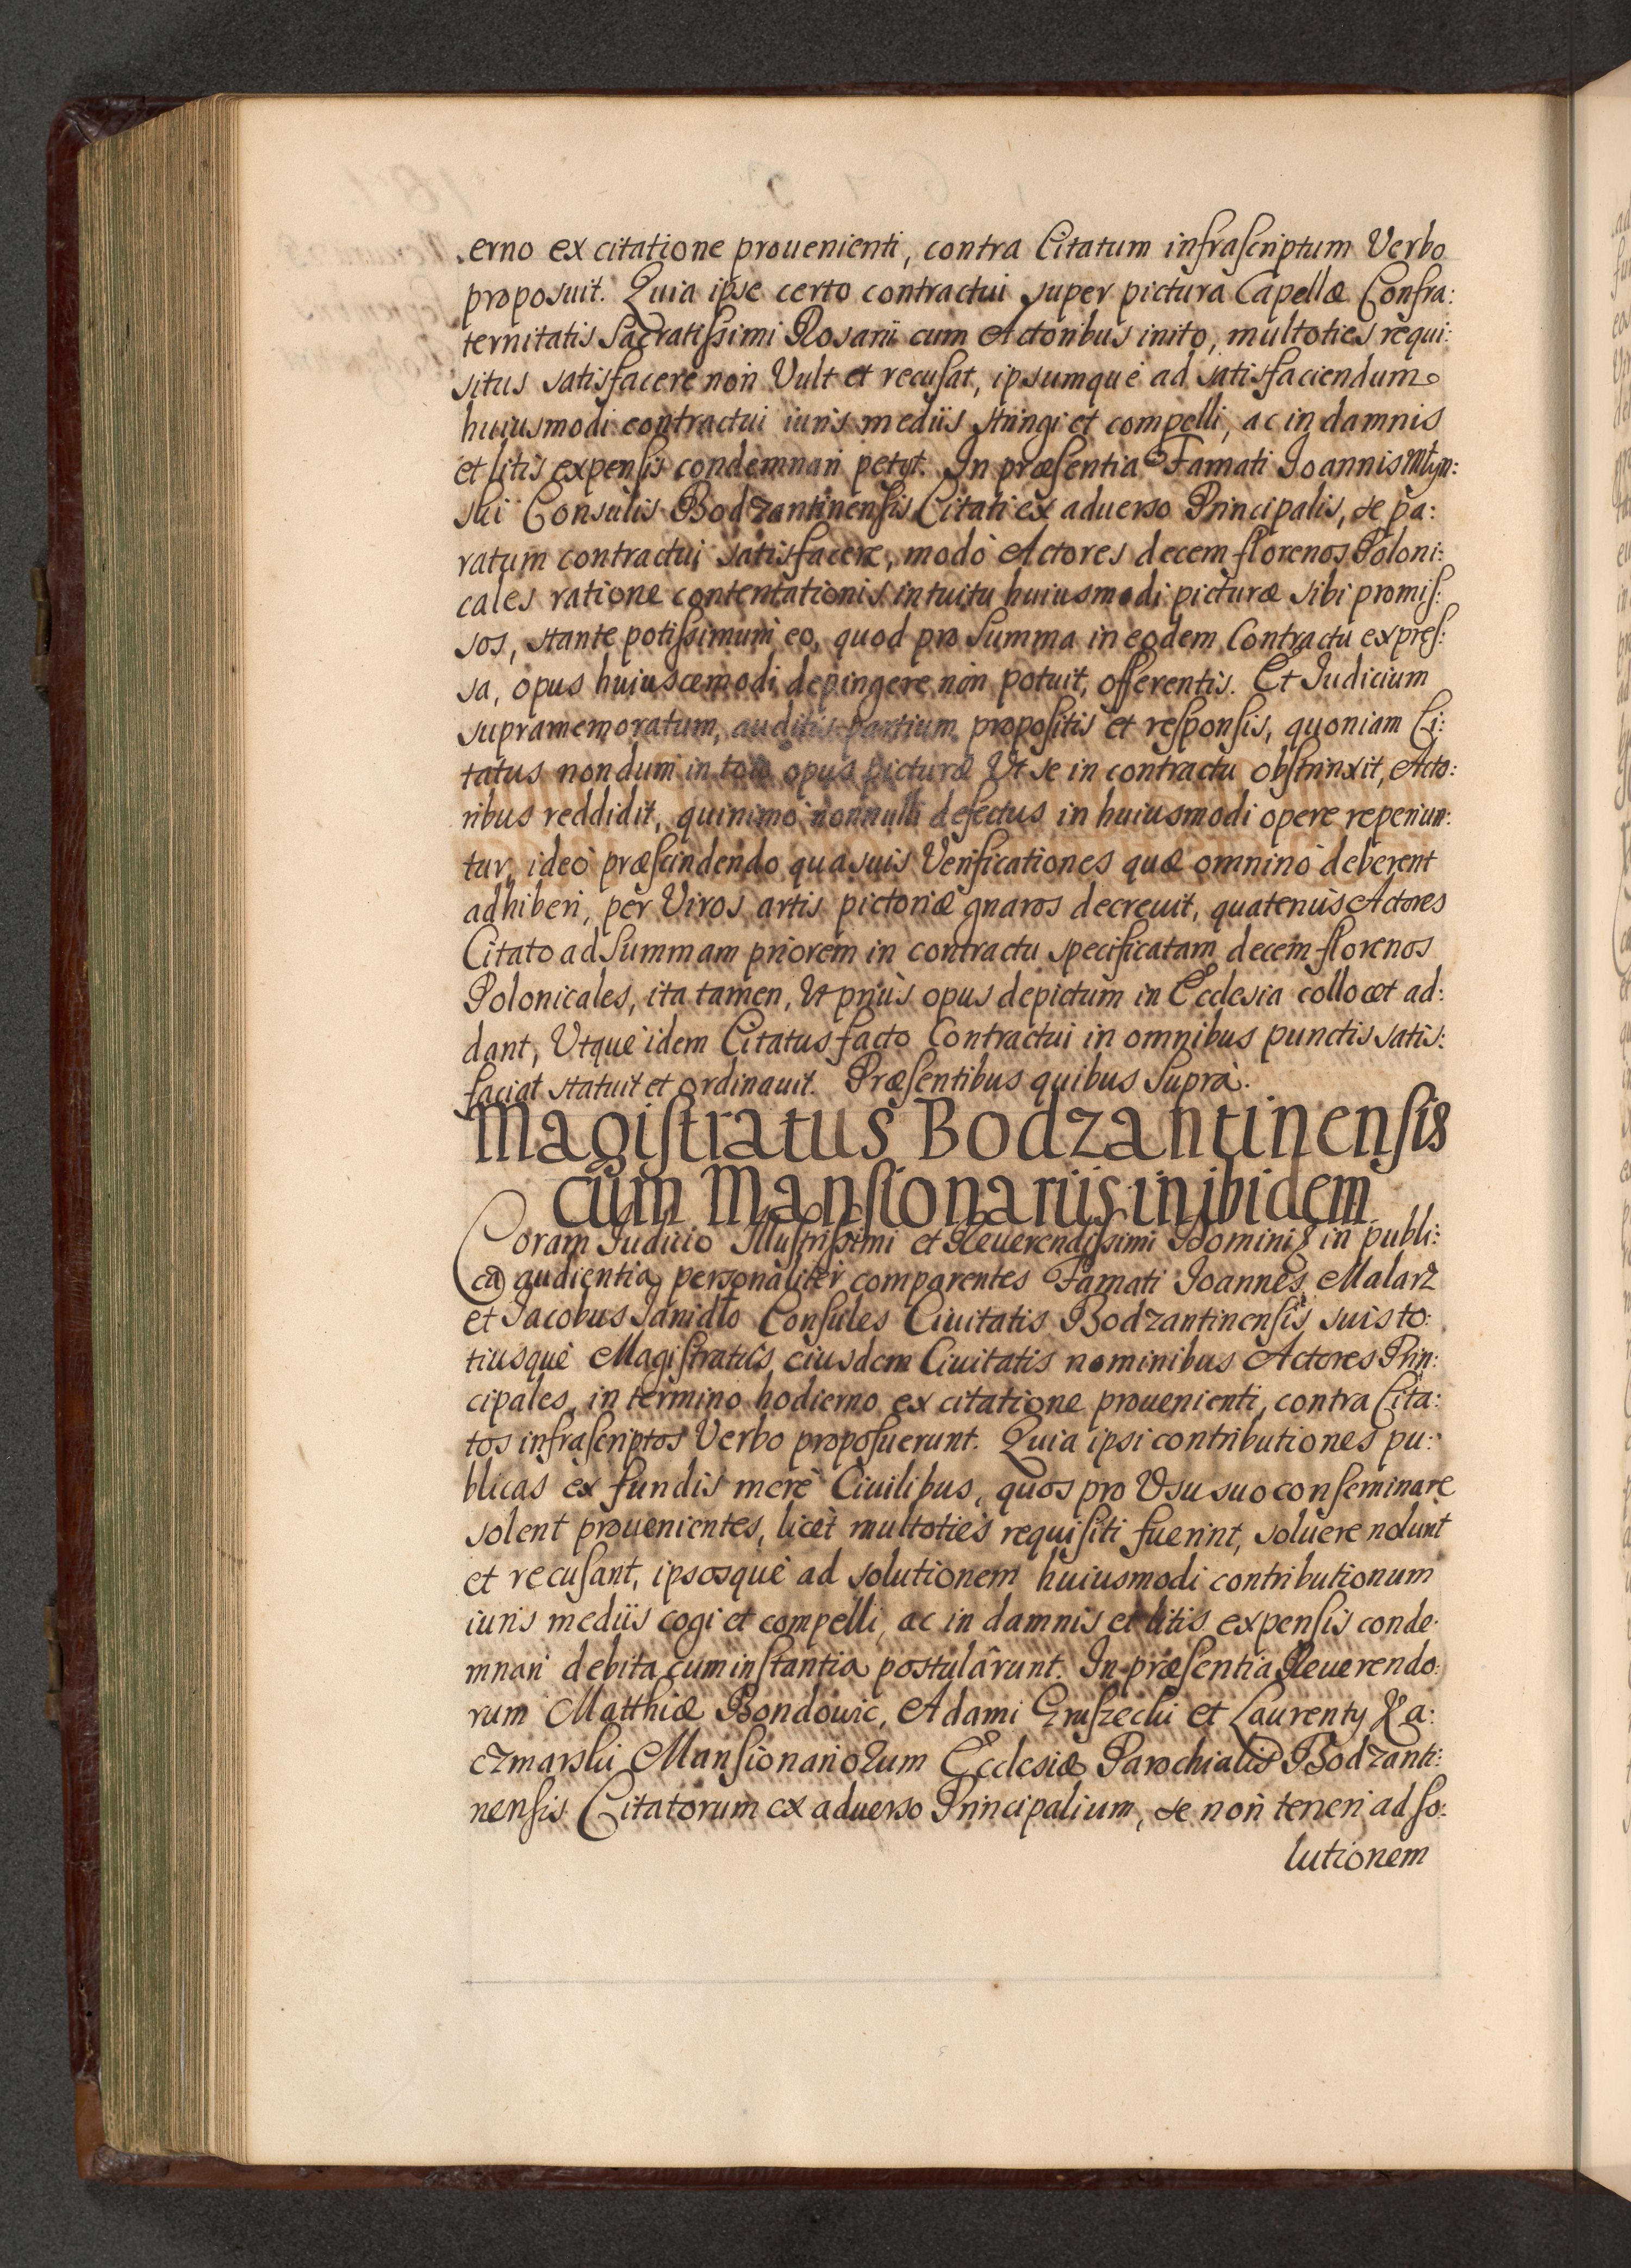 erno ex citatione prouenienti, contra Citatum infraſcriptum Verbo
proposuit. Quia ipse certo contractui super pictura Capellæ Confra:
ternitatis Sacratiſsimi Rosarii cum Actoribus inito, multoties requi:
situs satisfacere non Vult et recuſat, ipsumque ad satisfaciendum
huiusmodi contractui iuris mediis stringi et compelli, ac in damnis
et litis expenſis condemnari petyt. In præſentia Famati Joannis Młyn:
ski Consulis Bodzantinenſis Citati ex aduerso Principalis, se pa:
ratum contractui satisfacere, modò Actores decem florenos Poloni:
cales ratione contentationis intuitu huiusmodi picturæ sibi promiſ:
sos, stante potiſsimùm eo, quod pro Summa in eodem Contractu expreſ:
sa, opus huiuscemodi depingere non potuit, offerentis. Et Judicium
supramemoratum, auditis partium propoſitis et reſponſis, quoniam Ci:
tatus nondum in toto opus picturæ Vt se in contractu obſtrinxit, Acto:
ribus reddidit, quinimò nonnulli defectus in huiusmodi opere reperiun:
tur, ideò præſcindendo quasuis Verificationes quæ omninò deberent
adhiberi, per Viros artis pictoriæ gnaros decreuit, quatenùs Actores
Citato ad Summam priorem in contractu specificatam decem florenos
Polonicales, ita tamen, Vt priùs opus depictum in Eccleſia collocet ad:
dant, Vtque idem Citatus facto Contractui in omnibus punctis satis:
faciat statuit et ordinauit. Præſentibus quibus Suprà.
Magiſtratus Bodzantinenſis
cum Manſionariis inibidem
Coram Judicio Illuſtriſsimi et Reuerendiſsimi Domini in publi:
ca audientia personaliter comparentes Famati Joannes Malarz
et Jacobus Janidło Conſules Ciuitatis Bodzantinenſis suis to:
tiusque Magiſtratus eiusdem Ciuitatis nominibus Actores Prin:
cipales, in termino hodierno ex citatione prouenienti, contra Cita:
tos infraſcriptos Verbo propoſuerunt. Quia ipsi contributiones pu:
blicas ex fundis merè Ciuilibus, quos pro Vsu suo conſeminare
solent prouenientes, licèt multoties requiſiti fuerint, soluere nolunt
et recuſant, ipsosque ad solutionem huiusmodi contributionum
iuris mediis cogi et compelli, ac in damnis et litis expenſis conde:
mnari debita cum inſtantia postulârunt. In præſentia Reuerendo:
rum Matthiæ Bondowic, Adami Gruſzecki et Laurenty Ka:
czmarski Manſionariorum Eccleſiæ Parochialis Bodzanti:
nenſis Citatorum ex aduerso Principalium, se non teneri ad ſo:
lutionem